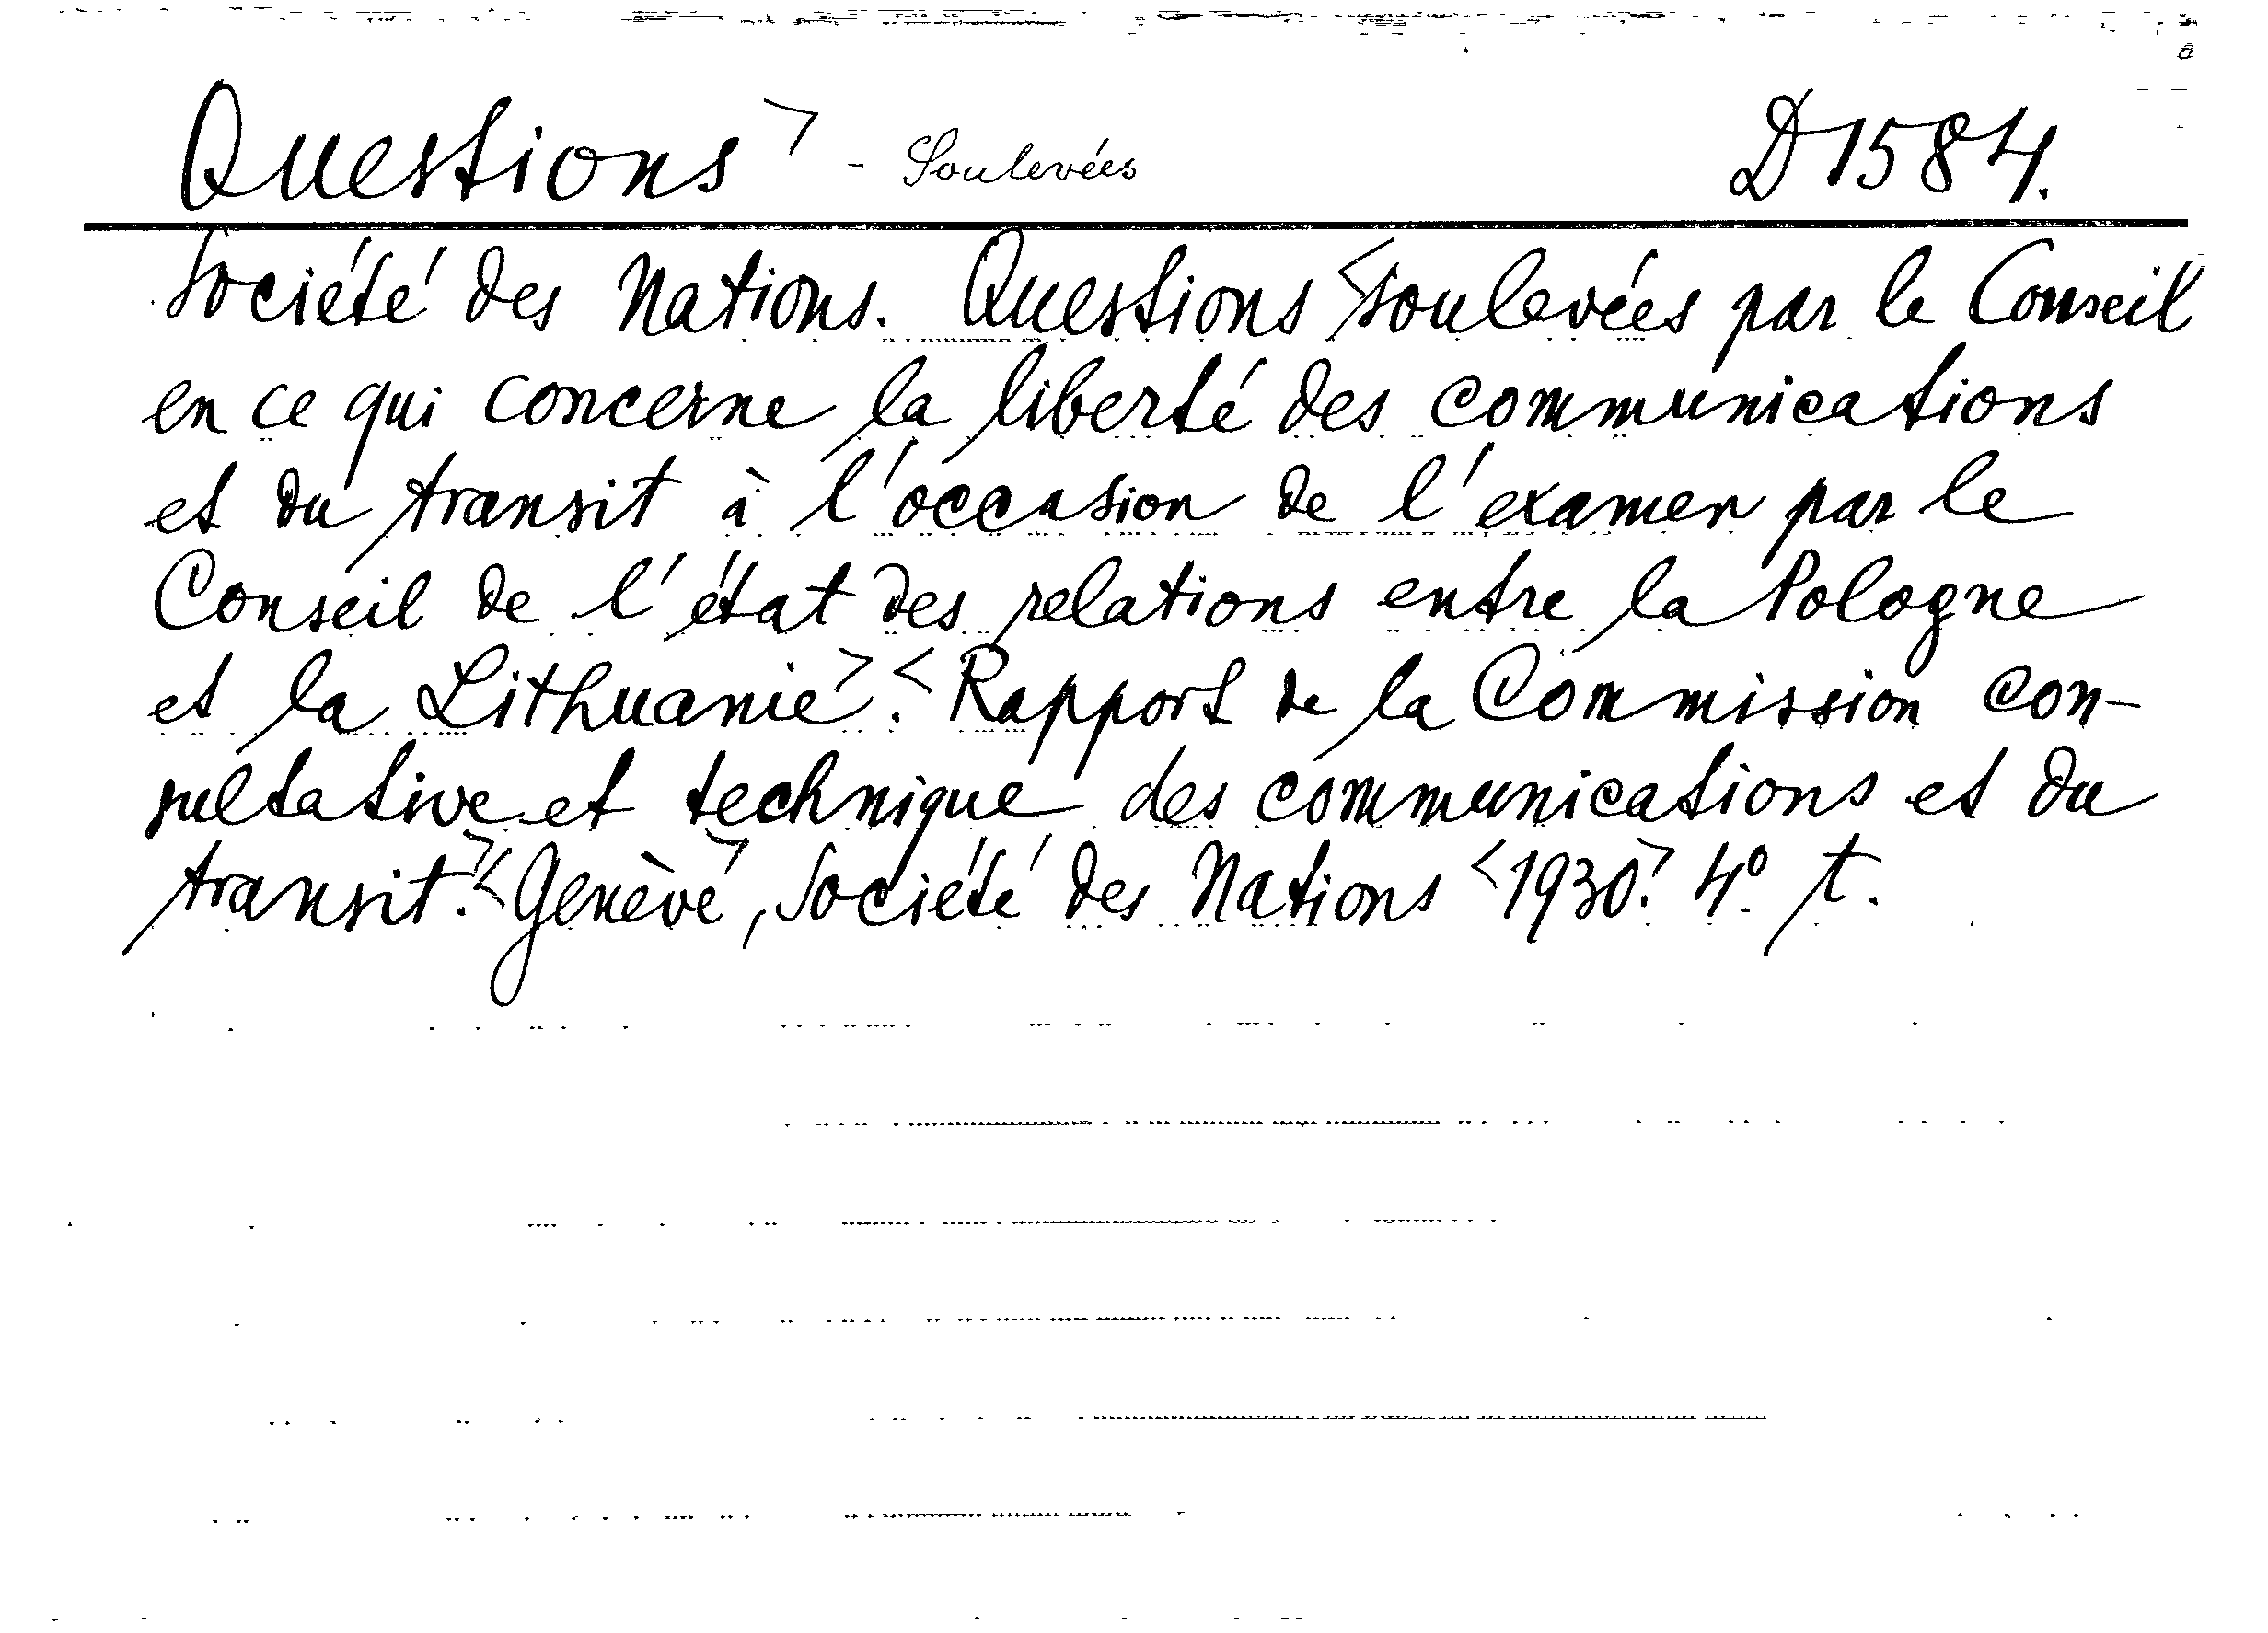 Questions - Soulevées D 1584.
Société des Nations. Questions soulevées par le Conseil
en ce qui concerne la liberté des communications
et du transit à l'occasion de l'examen par le
Conseil de l'état des relations entre la Pologne
et la Lithuanie. Rapport de la Commission con-
sultative et technique des communications et du
transit. Genève, Société des Nations 1930. 4° t.